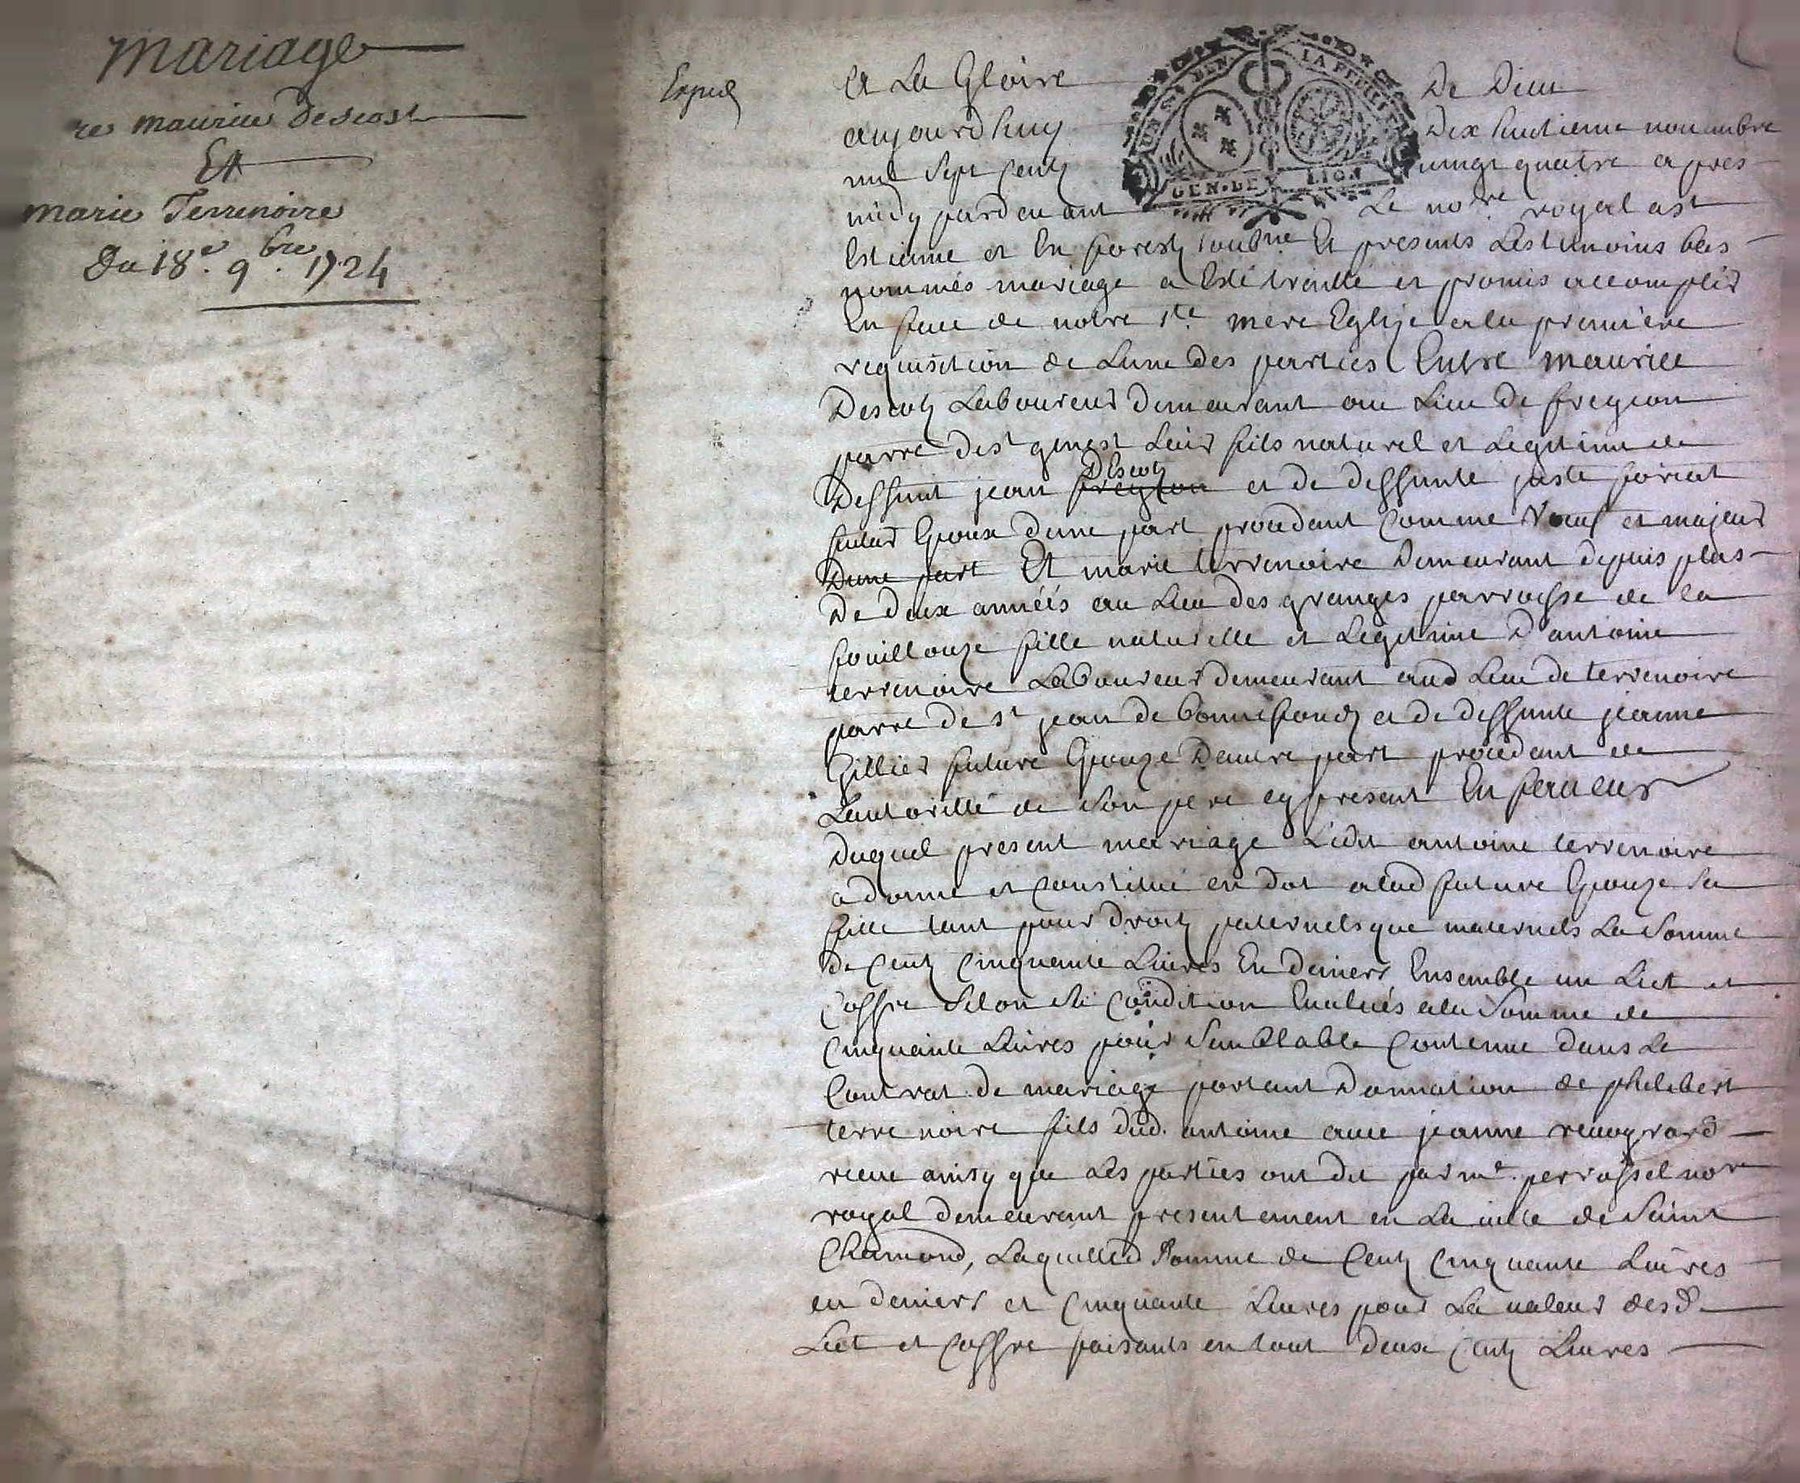 mariage
re maurice Descost
Et
marie Terrenoire
Du 18e. 9bre. 1724
Exped
A La Gloire De Dieu
aujourdhuy Dix huitieme nouembre
mil Sept Centz uingt quatre apres
midy pardeuant Le no.re royal a st
Estienne et En forestz soubne Et presents Les temoins bas
nommés mariage a Esté traitté et promis accomplir
En face de notre ste. mere Eglize a la premiere
requisition de Lune des parties Entre maurice
Descotz Laboureur demeurant au Lieu de fregeon
parre de st genest Lair fils naturel et Legitime de
deffunt jean fregeon Descotz et de deffunte juste foriat
futur Epoux dune part procedant Comme veuf et majeur
Dune part Et marie terrenoire demeurant depuis plus
De deux annéés au Lieu des granges parroisse de la
fouillouze fille naturelle et Legitime D'antoine
terrenoire Laboureur demeurant aud Lieu de terrenoire
parre de st jean de bonnefondz et de deffunte jeanne
Gillier future Epouze Dautre part procedant de
Lautorité de Son pere cy present En faueur
Duquel present mariage Ledit antoine terrenoire
a donné et Constitué en dot a lad future Epouze Sa
fille tant pour droitz paternels que maternels La Somme
de Centz Cinquante Liures En deniers Ensemble un Lict et
Coffre Selon Sa Condition Eualués a la Somme de
Cinquante Liures pour Semblable Contenue dans Le
Contrat de mariage portant Donnation de philibert
terrenoire fils dud. antoine auec jeanne
ainsy que Les parties ont dit par me. perrossel nore
royal demeurant presentement en La uille de Saint
Chamond, Laquelle Somme de Centz Cinquante Liures
en deniers et Cinquante Liures pour La ualeur desd
Lict et Coffre faisants en tout deux Centz Liures
GEN. DE LION